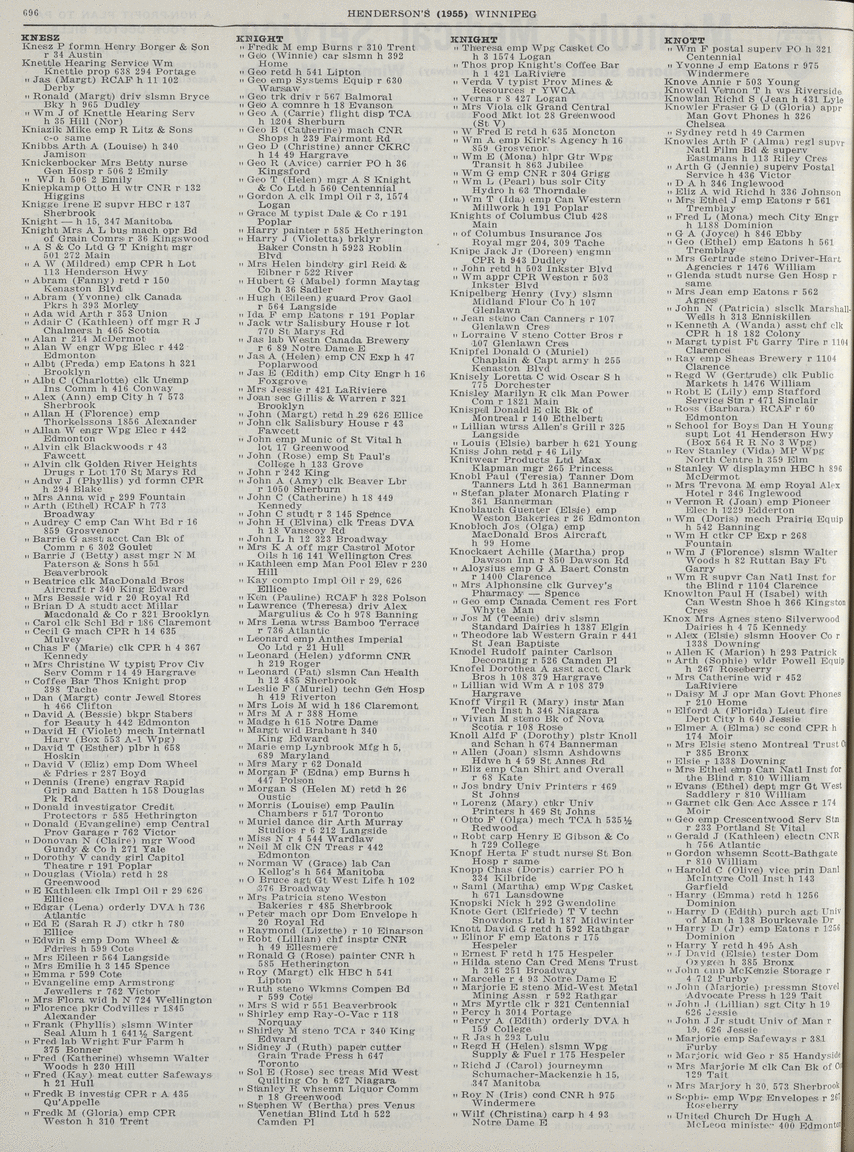 696
HENDERSON'S (1955) WINNIPEG
KNESZ
Knesz P formn Henry Borger & Son
r 34 Austin
Knettle Hearing Service Wm
Knettle prop 638 294 Portage
" Jas (Margt) RCAF h 11 102
Derby
" Ronald (Margt) driv slsmn Bryce
Bky h 965 Dudley
" Wm J of Knettle Hearing Serv
h 35 Hill (Nor)
Kniazik Mike emp R Litz & Sons
c-o same
Knibbs Arth A (Louise) h 340
Jamison
Knickerbocker Mrs Betty nurse
Gen Hosp r 506 2 Emily
" WJ h 506 2 Emily
Kniepkamp Otto H wtr CNR r 132
Higgins
Knigge Irene E supvr HBC r 137
Sherbrook
Knight — h 15, 347 Manitoba
Knight Mrs A L bus mach opr Bd
of Grain Comrs r 36 Kingswood
" A S & Co Ltd G T Knight mgr
501 272 Main
" A W (Mildred) emp CPR h Lot
113 Henderson Hwy
" Abram (Fanny) retd r 150
Kenaston Blvd
" Abram (Yvonne) clk Canada
Pkrs h 393 Morley
" Ada wid Arth r 353 Union
" Adair C (Kathleen) off mgr R J
Chalmers h 465 Scotia
" Alan r 214 McDermot
" Alan W engr Wpg Elec r 442
Edmonton
" Albt (Freda) emp Eatons h 321
Brooklyn
" Albt C (Charlotte) clk Unemp
Ins Comm h 416 Conway
" Alex (Ann) emp City h 7 573
Sherbrook
" Allan H (Florence) emp
Thorkelssons 1856 Alexander
" Allan W engr Wpg Elec r 442
Edmonton
" Alvin clk Blackwoods r 43
Fawcett
" Alvin clk Golden River Heights
Drugs r Lot 170 St Marys Rd
" Andw J (Phyllis) yd formn CPR
h 294 Blake
" Mrs Anna wid r 299 Fountain
" Arth (Ethel) RCAF h 773
Broadway
" Audrey C emp Can Wht Bd r 16
859 Grosvenor
" Barrie G asst acct Can Bk of
Comm r 6 302 Goulet
" Barrie J (Betty) asst mgr N M
Paterson & Sons h 551
Beaverbrook
" Beatrice clk MacDonald Bros
Aircraft r 340 King Edward
" Mrs Bessie wid r 20 Royal Rd
" Brian D A studt acct Millar
Macdonald & Co r 321 Brooklyn
" Carol clk Schl Bd r 186 Claremont
" Cecil G mach CPR h 14 635
Mulvey
" Chas F (Marie) clk CPR h 4 367
Kennedy
" Mrs Christine W typist Prov Civ
Serv Comm r 14 49 Hargrave
" Coffee Bar Thos Knight prop
398 Tache
" Dan (Margt) contr Jewell Stores
h 466 Clifton
" David A (Bessie) bkpr Stabers
for Beauty h 442 Edmonton
" David H (Violet) mech Internatl
Harv (Box 553 A-1 Wpg)
" David T (Esther) plbr h 658
Hoskin
" David V (Eliz) emp Dom Wheel
& Fdries r 287 Boyd
" Dennis (Irene) engrav Rapid
Grip and Batten h 158 Douglas
Pk Rd
" Donald investigator Credit
Protectors r 585 Hethrington
" Donald (Evangeline) emp Central
Prov Garage r 762 Victor
" Donovan N (Claire) mgr Wood
Gundy & Co h 271 Yale
" Dorothy V candy girl Capitol
Theatre r 191 Poplar
" Douglas (Viola) retd h 28
Greenwood
" E Kathleen clk Impl Oil r 29 626
Ellice
" Edgar (Lena) orderly DVA h 736
Atlantic
" Ed E (Sarah R J) ctkr h 780
Ellice
" Edwin S emp Dom Wheel &
Fdries h 599 Cote
" Mrs Eileen r 564 Langside
" Mrs Emilie h 3 145 Spence
" Emma r 599 Cote
" Evangeline emp Armstrong
Jewellers r 762 Victor
" Mrs Flora wid h N 724 Wellington
" Florence pkr Codvilles r 1845
Alexander
" Frank (Phyllis) slsmn Winter
Seal Alum h 1 641½ Sargent
" Fred lab Wright Fur Farm h
375 Bonner
" Fred (Katherine) whsemn Walter
Woods h 230 Hill
" Fred (Kay) meat cutter Safeways
h 21 Hull
" Fredk B investig CPR r A 435
Qu'Appelle
" Fredk M (Gloria) emp CPR
Weston h 310 Trent
KNIGHT
" Fredk M emp Burns r 310 Trent
" Geo (Winnie) car slsmn h 392
Home
" Geo retd h 541 Lipton
" Geo emp Systems Equip r 630
Warsaw
" Geo trk driv r 567 Balmoral
" Geo A comnre h 18 Evanson
" Geo A (Carrie) flight disp TCA
h 1204 Sherburn
" Geo B (Catherine) mach CNR
Shops h 239 Fairmont Rd
" Geo D (Christine) anncr CKRC
h 14 49 Hargrave
" Geo R (Avice) carrier PO h 36
Kingsford
" Geo T (Helen) mgr A S Knight
& Co Ltd h 560 Centennial
" Gordon A clk Impl Oil r 3, 1574
Logan
" Grace M typist Dale & Co r 191
Poplar
" Harry painter r 585 Hetherington
" Harry J (Violetta) brklyr
Baker Constn h 5923 Roblin
Blvd
" Mrs Helen bindery girl Reid &
Eibner r 522 River
" Hubert G (Mabel) formn Maytag
Co h 36 Sadler
" Hugh (Eileen) guard Prov Gaol
r 564 Langside
" Ida F emp Eatons r 191 Poplar
" Jack wtr Salisbury House r lot
770 St Marys Rd
" Jas lab Westn Canada Brewery
r 6 89 Notre Dame E
" Jas A (Helen) emp CN Exp h 47
Poplarwood
" Jas E (Edith) emp City Engr h 16
Foxgrove
" Mrs Jessie r 421 LaRiviere
" Joan sec Gillis & Warren r 321
Brooklyn
" John (Margt) retd h 29 626 Ellice
" John clk Salisbury House r 43
Fawcett
" John emp Munic of St Vital h
lot 17 Greenwood
" John (Rose) emp St Paul's
College h 133 Grove
" John r 242 King
" John A (Amy) clk Beaver Lbr
r 1050 Sherburn
" John C (Catherine) h 18 449
Kennedy
" John C studt r 3 145 Spence
" John H (Elvina) clk Treas DVA
h 18 Vanscoy Rd
" John L h 12 323 Broadway
" Mrs K A off mgr Castrol Motor
Oils h 16 141 Wellington Cres
" Kathleen emp Man Pool Elev r 230
Hill
" Kay compto Impl Oil r 29, 626
Ellice
" Ken (Pauline) RCAF h 328 Polson
" Lawrence (Theresa) driv Alex
Margulius & Co h 978 Banning
" Mrs Lena wtrss Bamboo Terrace
r 736 Atlantic
" Leonard emp Anthes Imperial
Co Ltd r 21 Hull
" Leonard (Helen) ydformn CNR
h 219 Roger
" Leonard (Pat) slsmn Can Health
h 12 485 Sherbrook
" Leslie F (Muriel) techn Gen Hosp
h 419 Riverton
" Mrs Lois M wid h 186 Claremont
" Mrs M A r 388 Home
" Madge h 615 Notre Dame
" Margt wid Brabant h 340
King Edward
" Marie emp Lynbrook Mfg h 5,
689 Maryland
" Mrs Mary r 62 Donald
" Morgan F (Edna) emp Burns h
447 Polson
" Morgan S (Helen M) retd h 26
Oustic
" Morris (Louise) emp Paulin
Chambers r 517 Toronto
" Muriel dance dir Arth Murray
Studios r 6 212 Langside
" Miss N r 4 544 Wardlaw
" Neil M clk CN Treas r 442
Edmonton
" Norman W (Grace) lab Can
Kellog's h 564 Manitoba
" O Bruce agt Gt West Life h 102
376 Broadway
" Mrs Patricia steno Weston
Bakeries r 485 Sherbrook
" Peter mach opr Dom Envelope h
20 Royal Rd
" Raymond (Lizette) r 10 Einarson
" Robt (Lillian) chf insptr CNR
h 49 Ellesmere
" Ronald G (Rose) painter CNR h
585 Hetherington
" Roy (Margt) clk HBC h 541
Lipton
" Ruth steno Wkmns Compen Bd
r 599 Cote
" Mrs S wid r 551 Beaverbrook
" Shirley emp Ray-O-Vac r 118
Norquay
" Shirley M steno TCA r 340 King
Edward
" Sidney J (Ruth) paper cutter
Grain Trade Press h 647
Toronto
" Sol E (Rose) sec treas Mid West
Quilting Co h 627 Niagara
" Stanley R whsemn Liquor Comm
r 18 Greenwood
" Stephen W (Bertha) pres Venus
Venetian Blind Ltd h 522
Camden Pl
KNIGHT
" Theresa emp Wpg Casket Co
h 3 1574 Logan
" Thos prop Knight's Coffee Bar
h 1 421 LaRiviere
" Verda V typist Prov Mines &
Resources r YWCA
" Verna r 8 427 Logan
" Mrs Viola clk Grand Central
Food Mkt lot 28 Greenwood
(St V)
" W Fred E retd h 635 Moncton
" Wm A emp Kirk's Agency h 16
859 Grosvenor
" Wm E (Mona) hlpr Gtr Wpg
Transit h 863 Jubilee
" Wm G emp CNR r 304 Grigg
" Wm L (Pearl) bus solr City
Hydro h 63 Thorndale
" Wm T (Ida) emp Can Western
Millwork h 191 Poplar
Knights of Columbus Club 428
Main
" of Columbus Insurance Jos
Royal mgr 204, 309 Tache
Knipe Jack Jr (Doreen) engmn
CPR h 943 Dudley
" John retd h 503 Inkster Blvd
" Wm appr CPR Weston r 503
Inkster Blvd
Knipelberg Henry (Ivy) slsmn
Midland Flour Co h 107
Glenlawn
" Jean steno Can Canners r 107
Glenlawn Cres
" Lorraine V steno Cotter Bros r
107 Glenlawn Cres
Knipfel Donald O (Muriel)
Chaplain & Capt army h 255
Kenaston Blvd
Knisely Loretta C wid Oscar S h
775 Dorchester
Knisley Marilyn R clk Man Power
Com r 1821 Main
Knispel Donald E clk Bk of
Montreal r 140 Ethelbert
" Lillian wtrss Allen's Grill r 325
Langside
" Louis (Elsie) barber h 621 Young
Kniss John retd r 46 Lily
Knitwear Products Ltd Max
Klapman mgr 265 Princess
Knobl Paul (Teresia) Tanner Dom
Tanners Ltd h 361 Bannerman
" Stefan plater Monarch Plating r
361 Bannerman
Knoblauch Guenter (Elsie) emp
Weston Bakeries r 26 Edmonton
Knobloch Jos (Olga) emp
MacDonald Bros Aircraft
h 99 Home
Knockaert Achille (Martha) prop
Dawson Inn r 850 Dawson Rd
" Aloysius emp G A Baert Constn
r 1400 Clarence
" Mrs Alphonsine clk Gurvey's
Pharmacy — Spence
" Geo emp Canada Cement res Fort
Whyte Man
" Jos M (Teenie) driv slsmn
Standard Dairies h 1387 Elgin
" Theodore lab Western Grain r 441
St Jean Baptiste
Knodel Rudolf painter Carlson
Decorating r 526 Camden Pl
Knofel Dorothea A asst acct Clark
Bros h 108 379 Hargrave
" Lillian wid Wm A r 108 379
Hargrave
Knoff Virgil R (Mary) instr Man
Tech Inst h 346 Niagara
" Vivian M steno Bk of Nova
Scotia r 108 Rose
Knoll Alfd F (Dorothy) plstr Knoll
and Schan h 674 Bannerman
" Allen (Joan) slsmn Ashdowns
Hdwe h 4 59 St Annes Rd
" Eliz emp Can Shirt and Overall
r 68 Kate
" Jos bndry Univ Printers r 469
St Johns
" Lorenz (Mary) ctkr Univ
Printers h 469 St Johns
" Otto F (Olga) mech TCA h 535½
Redwood
" Robt carp Henry E Gibson & Co
h 729 College
Knopf Herta F studt nurse St Bon
Hosp r same
Knopp Chas (Doris) carrier PO h
334 Kilbride
" Saml (Martha) emp Wpg Casket
h 671 Lansdowne
Knopski Nick h 292 Gwendoline
Knote Gert (Elfriede) T V techn
Snowdons Ltd h 187 Midwinter
Knott David G retd h 592 Rathgar
" Elinor F emp Eatons r 175
Hespeler
" Ernest F retd h 175 Hespeler
" Hilda steno Can Cred Mens Trust
h 316 251 Broadway
" Marcelle r 4 93 Notre Dame E
" Marjorie E steno Mid-West Metal
Mining Assn r 592 Rathgar
" Mrs Myrtle clk r 321 Centennial
" Percy h 3014 Portage
" Percy A (Edith) orderly DVA h
159 College
" R Jas h 293 Lulu
" Regd H (Helen) slsmn Wpg
Supply & Fuel r 175 Hespeler
" Richd J (Carol) journeymn
Schumacher-Mackenzie h 15,
347 Manitoba
" Roy N (Iris) cond CNR h 975
Windermere
" Wilf (Christina) carp h 4 93
Notre Dame E
KNOTT
" Wm F postal superv PO h 321
Centennial
" Yvonne J emp Eatons r 975
Windermere
Knove Annie r 503 Young
Knowell Vernon T h ws Riverside
Knowlan Richd S (Jean h 431 Lyle
Knowler Fraser G D (Gloria) appr
Man Govt Phones h 326
Chelsea
" Sydney retd h 49 Carmen
Knowles Arth F (Alma) regl supvr
Natl Film Bd & superv
Eastmans h 113 Riley Cres
" Arth G (Jennie) superv Postal
Service h 436 Victor
" D A h 346 Inglewood
" Eliz A wid Richd h 336 Johnson
" Mrs Ethel J emp Eatons r 561
Tremblay
" Fred L (Mona) mech City Engr
h 1188 Dominion
" G A (Joyce) h 846 Ebby
" Geo (Ethel) emp Eatons h 561
Tremblay
" Mrs Gertrude steno Driver-Hart
Agencies r 1476 William
" Glenda studt nurse Gen Hosp r
same
" Mrs Jean emp Eatons r 562
Agnes
" John N (Patricia) slsclk Marshall-
Wells h 313 Enniskillen
" Kenneth A (Wanda) asst chf clk
CPR h 18 182 Colony
" Margt typist Ft Garry Tire r 1104
Clarence
" Ray emp Sheas Brewery r 1104
Clarence
" Regd W (Gertrude) clk Public
Markets h 1476 William
" Robt E (Lily) emp Stafford
Service Stn r 471 Sinclair
" Ross (Barbara) RCAF r 60
Edmonton
" School for Boys Dan H Young
supt Lot 41 Henderson Hwy
(Box 564 R R No 3 Wpg)
" Rev Stanley (Vida) MP Wpg
North Centre h 359 Elm
" Stanley W displaymn HBC h 896
McDermot
" Mrs Trevona M emp Royal Alex
Hotel r 346 Inglewood
" Vernon R (Joan) emp Pioneer
Elec h 1229 Edderton
" Wm (Doris) mech Prairie Equip
h 542 Banning
" Wm H ctkr CP Exp r 268
Fountain
" Wm J (Florence) slsmn Walter
Woods h 82 Ruttan Bay Ft
Garry
" Wm R supvr Can Natl Inst for
the Blind r 1104 Clarence
Knowlton Paul H (Isabel) with
Can Westn Shoe h 366 Kingston
Cres
Knox Mrs Agnes steno Silverwood
Dairies h 4 75 Kennedy
" Alex (Elsie) slsmn Hoover Co r
1338 Downing
" Allen K (Marion) h 293 Patrick
" Arth (Sophie) wldr Powell Equip
h 267 Roseberry
" Mrs Catherine wid r 452
LaRiviere
" Daisy M J opr Man Govt Phones
r 210 Home
" Elford A (Florida) Lieut fire
Dept City h 640 Jessie
" Elmer A (Elma) sc cond CPR h
174 Moir
" Mrs Elsie steno Montreal Trust
r 385 Bronx
" Elsie r 1338 Downing
" Mrs Ethel emp Can Natl Inst for
the Blind r 810 William
" Evans (Ethel) dept mgr Gt West
Saddlery r 810 William
" Garnet clk Gen Acc Assce r 174
Moir
" Geo emp Crescentwood Serv Stn
r 233 Portland St Vital
" Gerald J (Kathleen) electn CNR
h 756 Atlantic
" Gordon whsemn Scott-Bathgate
r 810 William
" Harold C (Olive) vice prin Danl
McIntyre Coll Inst h 143
Garfield
" Harry (Emma) retd h 1256
Dominion
" Harry D (Edith) purch agt Univ
of Man h 138 Bourkevale Dr
" Harry D (Jr) emp Eatons r 1256
Dominion
" Harry Y retd h 495 Ash
" J David (Elsie) tester Dom
Oxygen h 385 Bronx
" John emp McKenzie Storage r
4 712 Furby
" John (Marjorie) pressmn Stovel
Advocate Press h 129 Tait
" John J (Lillian) sgt City h 19
626 Jessie
" John J Jr studt Univ of Man r
19, 626 Jessie
" Marjorie emp Safeways r 381
Furby
" Marjorie wid Geo r 85 Handyside
" Mrs Marjorie M clk Can Bk of
129 Tait
" Mrs Marjory h 30, 573 Sherbrook
" Sophie emp Wpg Envelopes r 267
Roseberry
" United Church Dr Hugh A
McLeod minister 400 Edmonton